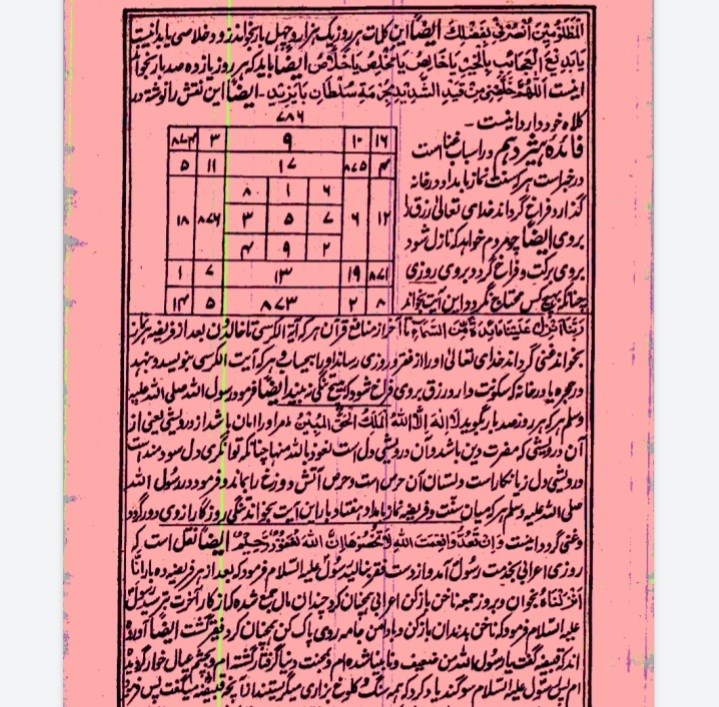 المظلومین انصرنی بفضلک ایضاً این کلمات هر روز یکهزار و چهل بار بخواند زود خلاصی یابد اینست
یا بدیع العجائب بالخیر یا خالص یا مخلص یا خلاص ایضاً باید که هر روز یازده صد بار بخواند
اینست اللهم خلصنی من قید الشدید بحرمة سلطان بایزید - ایضاً این نقش را نوشته در
کلاه خود دارد اینست -
۷۸۶
۸۷۴ ۳ ۹ ۱۰ ۱۶
۵ ۱۱ ۱۷ ۸۷۵ ۴
۱۸ ۸۷۶ ۸ ۱ ۶ ۶ ۱۲
۳ ۵ ۷
۴ ۹ ۲
۱ ۷ ۱۳ ۱۹ ۸۷۱
۱۴ ۵ ۸۷۳ ۲ ۸
فائده هیژدهم در اسباب غنا است
در خبر است هر که سنت نماز بامداد در خانه
گذارد فراخ گرداند خدای تعالی رزق را
بروی ایضاً چو مردم خواهد که نازل شود
بروی برکت و فراخ گردد بروی روزی
چنانکه بهیچ کس محتاج نگردد این آیت بخواند
ربنا انزل علینا مائدة من السماء تا آخر از منافع قرآن هر که آیة الکرسی تا خالدون بعد از فریضه نماز
بخواند غنی گرداند خدای تعالی او را از فقر و روزی رساند او را بیحساب و هر که آیت الکرسی بنویسد و بنهد
در حجره یا در خانه که سکونت دارد رزق بروی فراخ شود که هیچ تنگی نه بیند ایضاً فرمود رسول الله صلی الله علیه
وسلم هر که هر روز صد بار بگوید لا اله الا الله الملک الحق المبین مر او را امان باشد از درویشی یعنی از
آن درویشی که مضرت دین باشد و آن درویشی دل است نعوذ بالله منها چنانکه توانگری دل سودمند است
درویشی دل زیانکار است و نشان آن حرص است و حرص آتش دوزخ را بماند و فرمود رسول الله
صلی الله علیه وسلم هر که میان سنت و فریضه نماز بامداد هفتاد بار این آیت بخواند تنگی روزگار از وی دور گردد
و غنی گردد اینست وان تعدوا نعمت الله لا تحصوها ان الله لغفور رحیم ایضاً نقل است که
روزی اعرابی بخدمت رسول آمد و از دست فقر نالید رسول علیه السلام فرمود که بعد از هر فریضه ده بار انا
انزلناه بخوان و بروز جمعه ناخن باز کن اعرابی همچنان کرد چندان مال جمع شد که از کار آخرت بترسید رسول
علیه السلام فرمود که ناخن بدندان باز کن و بدامن جامه روی پاک کن همچنان کرد فقیر گشت ایضاً آورده
اند که قیصه گفت یا رسول الله من ضعیف و نابینا شده ام و بمحنت دنیا گرفتار گشته ام و بچشم عیال خوار گردیده
ام پس رسول علیه السلام سوگند یاد کرد که همه سنگ و کلوخ بزاری میگریستند از آنچه قیصه میگفت پس فرمود